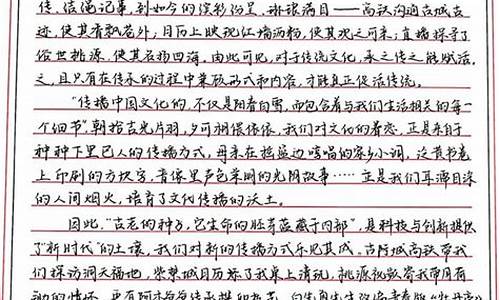 传、活泼记事，到如今的缤彩纷呈、琳琅满目——高铁沟通古城古
迹，使其看飘名外，目历上映现红墙沥粉，使其观之可亲；直播探寻了
俗世桃源，使其名扬四海。由此可见，对于传统文化，承之传之能赋活
之，且只有在传承的过程中兼顾形式和内容，才能真正促活传统。
“传播中国文化的，不仅是阳春白雪，而包含着与我们生活相关的每一
个细节”，朝拾吉光片羽，夕可相偎依依，我们对文化的眷恋，正是来自于
种种下里巴人的传播方式，母亲在摇篮边吟唱的家乡小调，泛黄书卷
上印刷的方块字，音像里声色荣润的光阴故事……正是我们耳濡目染
的人间烟火，培育了文化传播的沃土。
因此，“古老的种子，它生命的胚芽蕴藏于内部”，是科技与创新提供
了“新时代”的土壤，我们对新的传播方式乐见其成。古阵城高铁带我
们探访洞天福地，紫禁城日历添了我桌上清玩，桃源视频